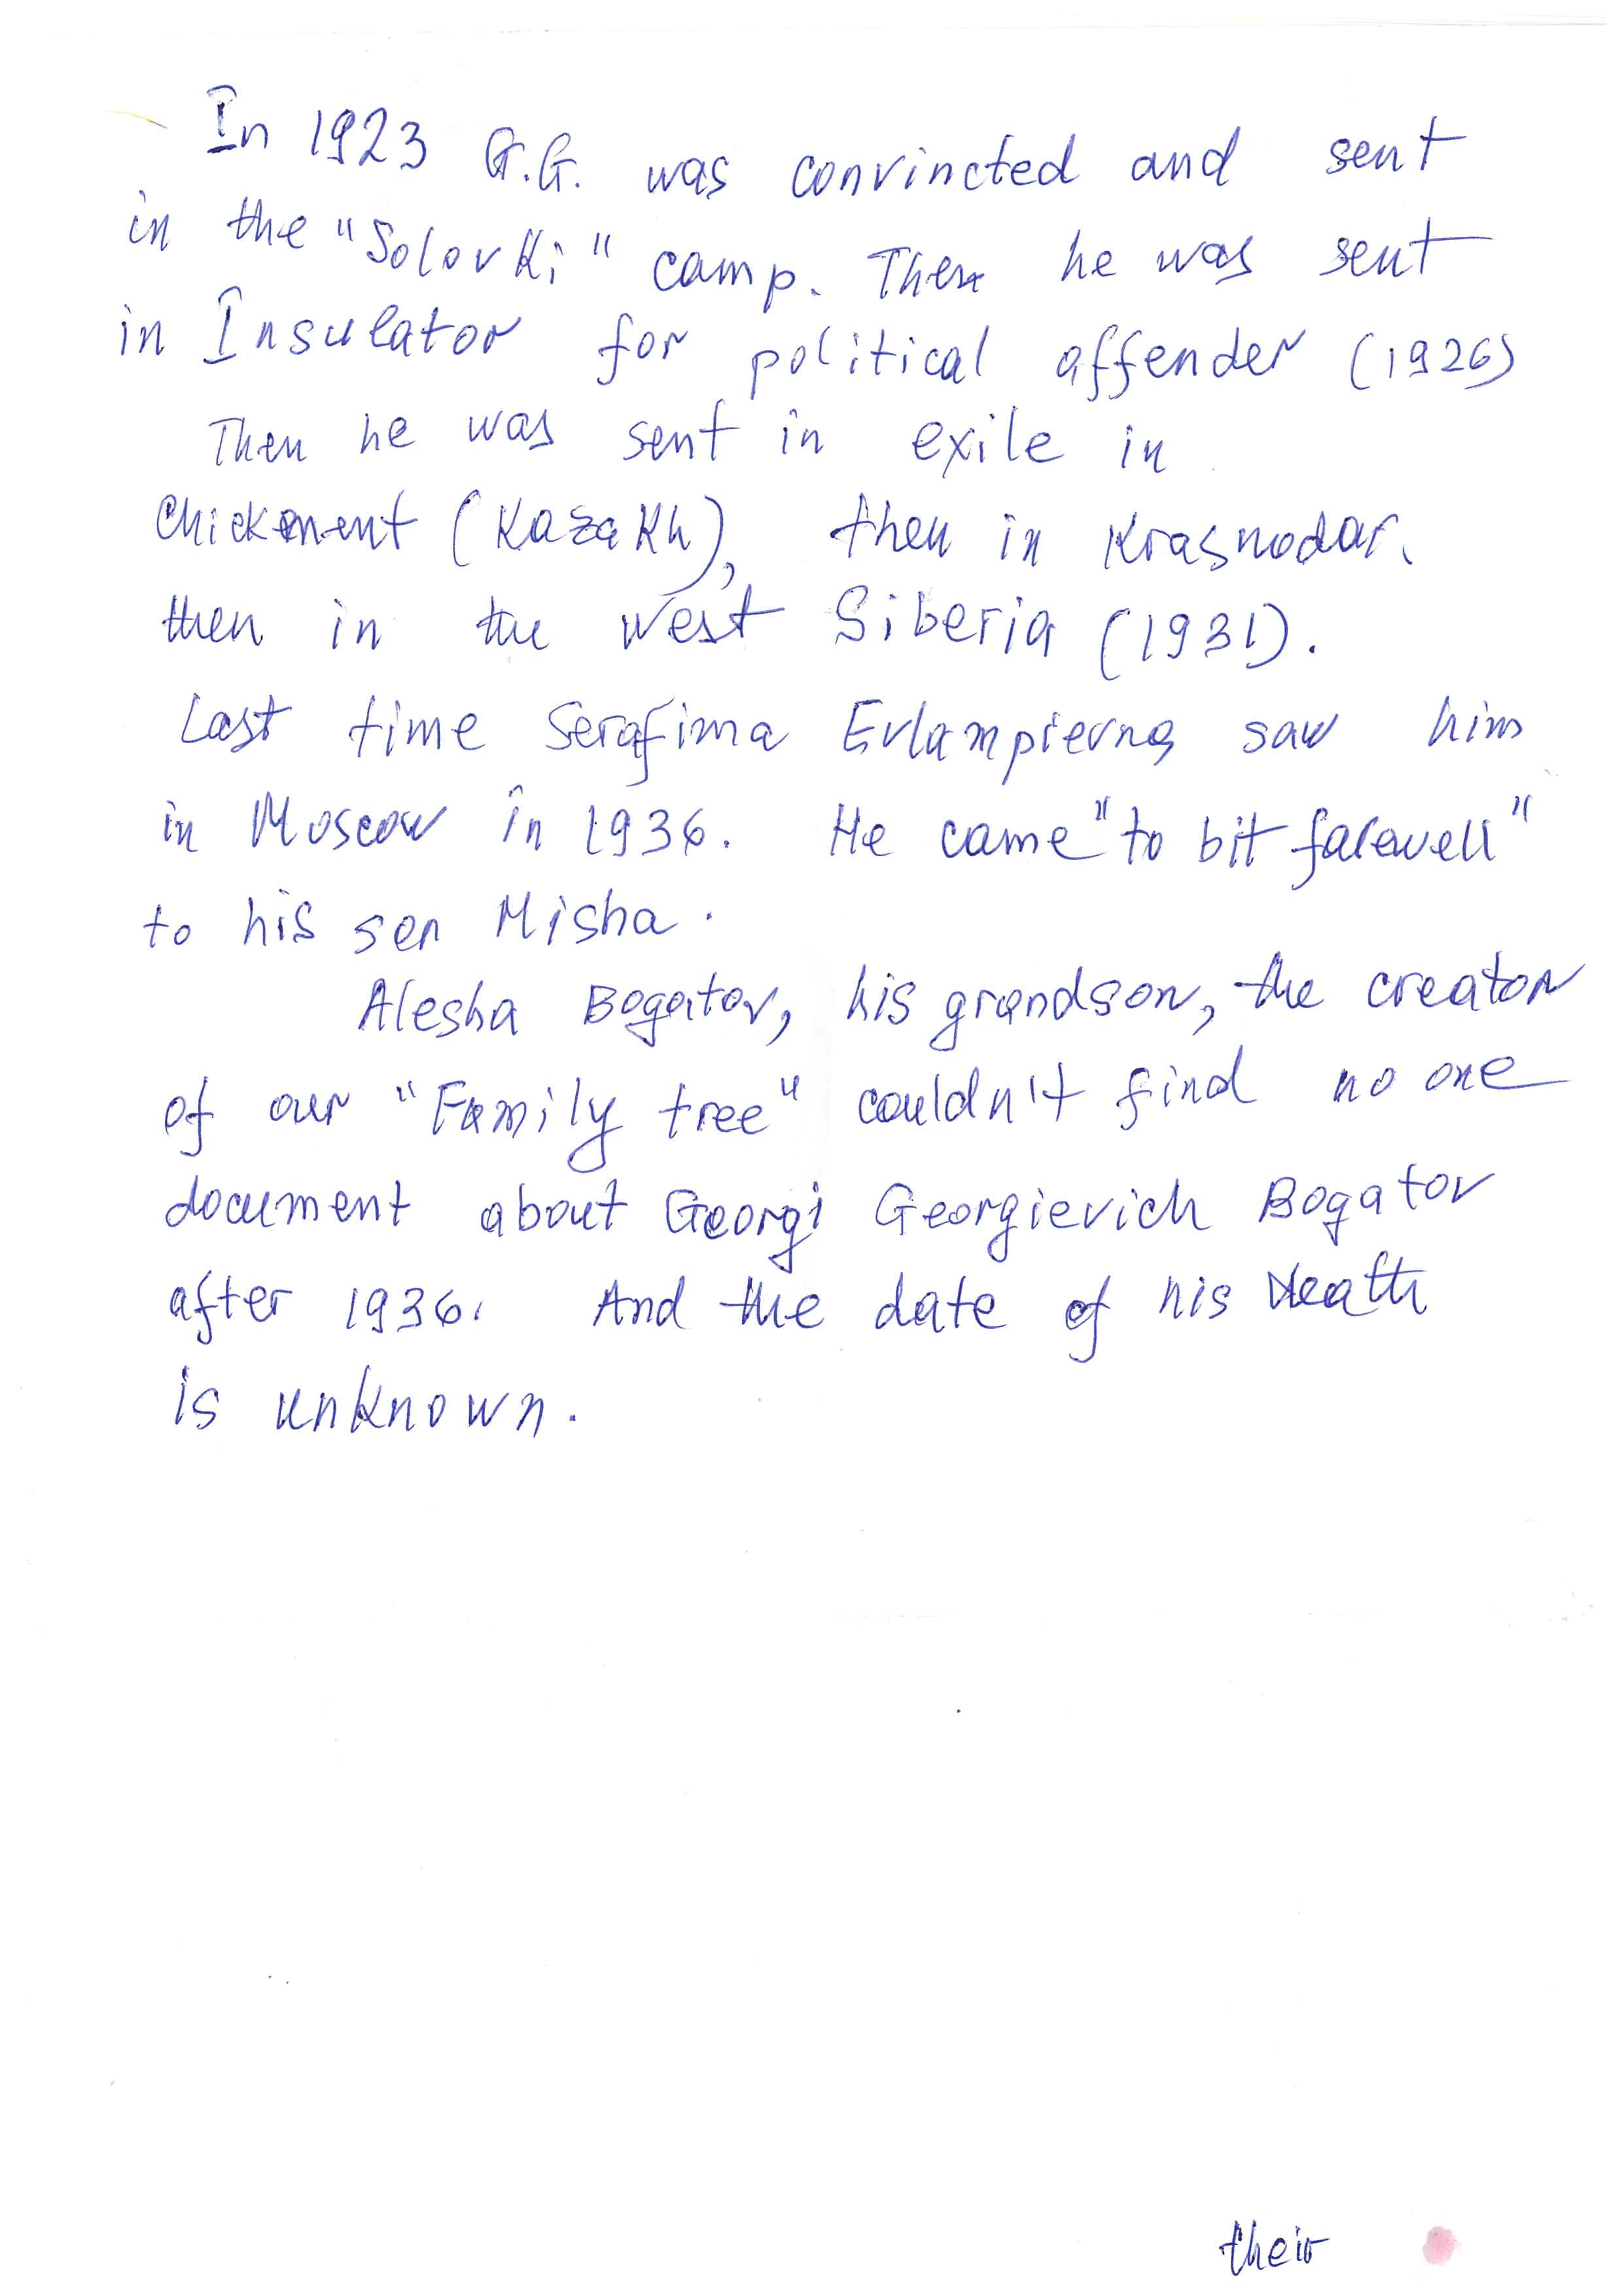 In 1923 G.G. was convincted and sent
in the "Solovki" camp. Then he was sent
in Insulator for political offender (1926)
Then he was sent in exile in
Chickment (Kazakh), then in Krasnodar.
then in the west Siberia (1931).
Last time Serafima Evlampievna saw him
in Moscow in 1936. He came "to bit farewell"
to his son Misha.
Alesha Bogatov, his grandson, the creator
of our "Family tree" couldn't find no one
document about Georgi Georgievich Bogatov
after 1936. And the date of his death
is unknown.
their